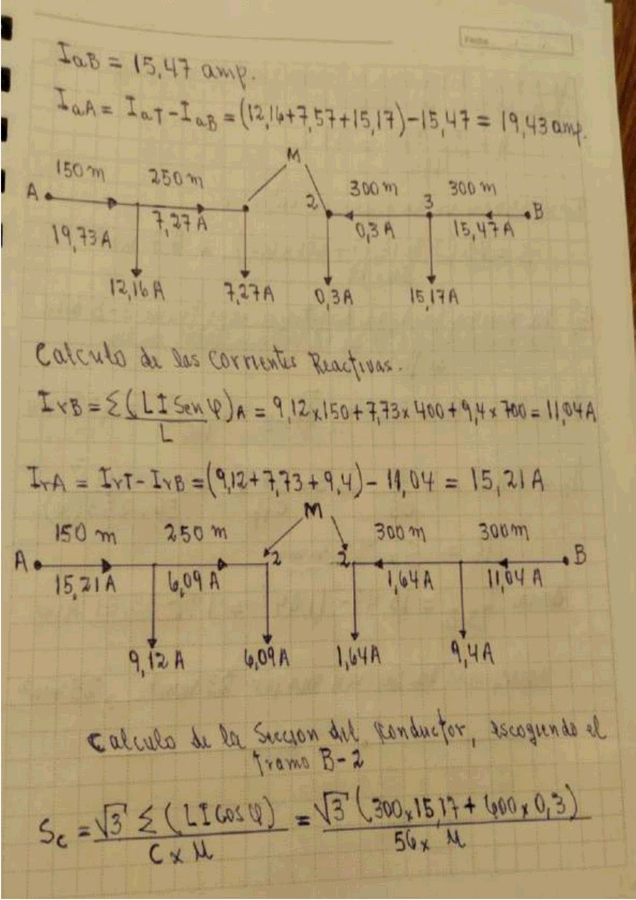 Fecha
IaB = 15,47 amp.
IaA = IaT - IaB = (12,16+7,57+15,17) - 15,47 = 19,43 amp.
M
150 m 250 m 300 m 3 300 m
A 2 B
19,73A 7,27A 0,3A 15,47A
12,16A 7,27A 0,3A 15,17A
Calculo de las corrientes Reactivas.
IrB = Σ(LI Sen φ)A / L = 9,12x150+7,73x400+9,4x700 = 11,04A
IrA = IrT - IrB = (9,12+7,73+9,4) - 11,04 = 15,21A
M
150 m 250 m 300 m 300m
A 2 2 B
15,21A 6,09A 1,64A 11,04A
9,12A 6,09A 1,64A 9,4A
Calculo de la Seccion del conductor, escogiendo el
tramo B-2
Sc = √3 Σ (LI Cos φ) / C x M = √3 (300x15,17 + 600x0,3) / 56x M